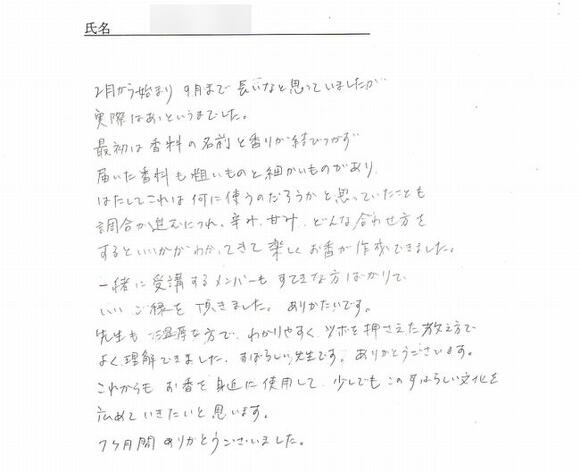 氏名
2月から始まり 9月まで 長いなと思っていましたが
実際はあっというまでした。
最初は香料の名前と香りが結びつかず
届いた香料も粗いものと細かいものがあり
はたしてこれは何に使うのだろうかと思っていたことも
調合が進むにつれ、辛み、甘み、どんな合わせ方を
するといいかがわかってきて楽しくお香が作成できました。
一緒に受講するメンバーもすてきな方ばかりで
いいご縁を頂きました。ありがたいです。
先生も温厚な方で、わかりやすく、ツボを押さえた教え方で
よく理解できました。すばらしい先生です。ありがとうございます。
これからもお香を身近に使用して、少しでもこのすばらしい文化を
広めていきたいと思います。
7ヶ月間ありがとうございました。